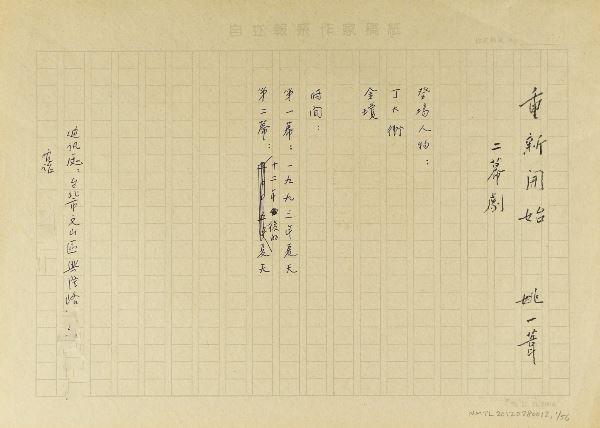 自立報系作家稿紙
重新開始 姚一葦
二幕劇
登場人物：
丁大衛
金瓊
時間：
第一幕：一九九三年夏天
第二幕：十二年後的夏天
通訊處：台北市文山區興隆路
電話
NMTL20120280012, 1/56